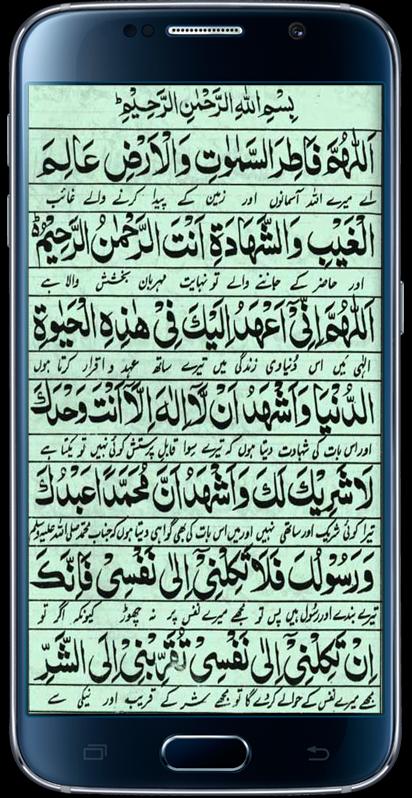 بِسْمِ اللهِ الرَّحْمٰنِ الرَّحِيْمِ ط
اَللّٰهُمَّ فَاطِرَ السَّمٰوٰتِ وَالْاَرْضِ عَالِمَ
اے میرے اللہ آسمانوں اور زمین کے پیدا کرنے والے غائب
الْغَيْبِ وَالشَّهَادَةِ اَنْتَ الرَّحْمٰنُ الرَّحِيْمُ ط
اور حاضر کے جاننے والے تو نہایت مہربان بخشش والا ہے
اَللّٰهُمَّ اِنِّىْٓ اَعْهَدُ اِلَيْكَ فِىْ هٰذِهِ الْحَيٰوةِ
الٰہی میں اس دنیاوی زندگی میں تیرے ساتھ عہد و اقرار کرتا ہوں
الدُّنْيَا وَاَشْهَدُ اَنْ لَّآ اِلٰهَ اِلَّآ اَنْتَ وَحْدَكَ
اور اس بات کی شہادت دیتا ہوں کہ تیرے سوا قابلِ پرستش کوئی نہیں تو یکتا ہے
لَا شَرِيْكَ لَكَ وَاَشْهَدُ اَنَّ مُحَمَّدًا عَبْدُكَ
تیرا کوئی شریک اور ساتھی نہیں اور میں اس بات کی بھی گواہی دیتا ہوں کہ جناب محمد صلی اللہ علیہ وسلم
وَرَسُوْلُكَ فَلَا تَكِلْنِىْٓ اِلٰى نَفْسِىْ فَاِنَّكَ
تیرے بندے اور رسول ہیں پس تو مجھے میرے نفس پر نہ چھوڑ کیونکہ اگر تو
اِنْ تَكِلْنِىْٓ اِلٰى نَفْسِىْ تُقَرِّبْنِىْٓ اِلَى الشَّرِّ
مجھے میرے نفس کے حوالے کر دے گا تو مجھے شر کے قریب اور نیکی سے